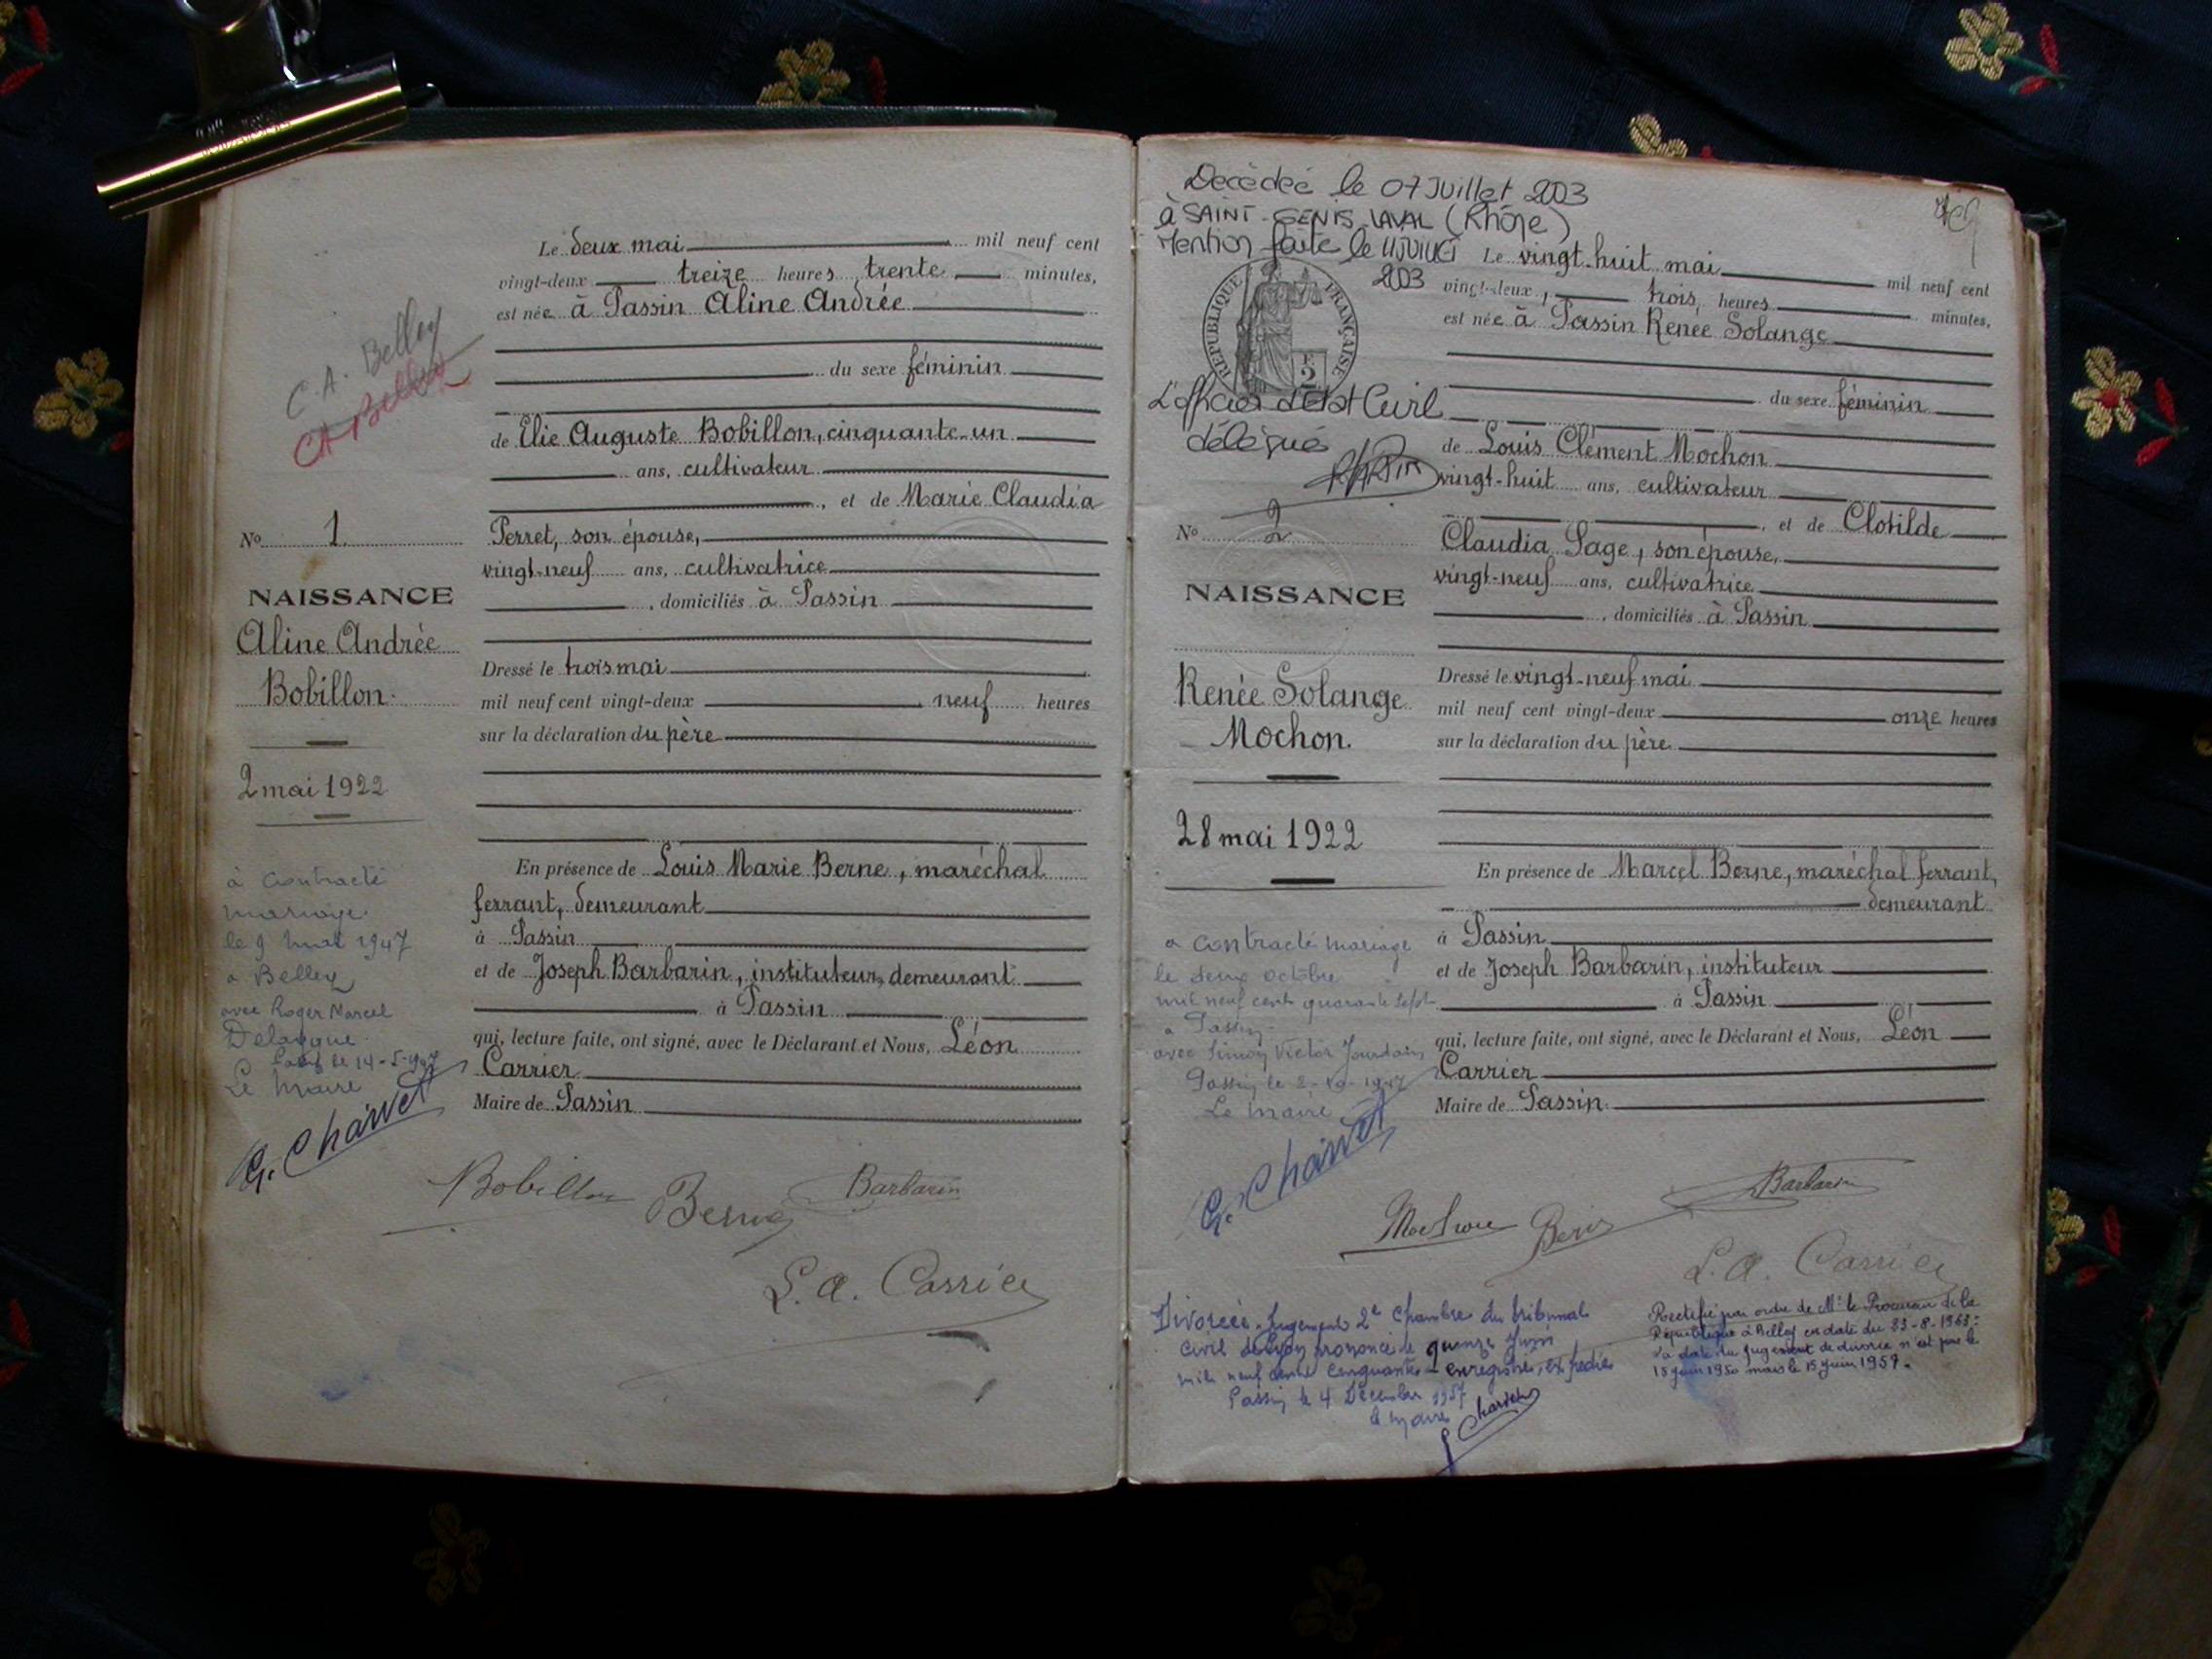 Le deux mai mil neuf cent
vingt-deux treize heures trente minutes,
est née à Passin Aline Andrée
du sexe féminin
de Elie Auguste Bobillon, cinquante-un
ans, cultivateur
, et de Marie Claudia
Perret, son épouse,
vingt-neuf ans, cultivatrice
, domiciliés à Passin
Dressé le trois mai
mil neuf cent vingt-deux neuf heures
sur la déclaration du père
En présence de Louis Marie Berne, maréchal
ferrant, demeurant
à Passin
et de Joseph Barbarin, instituteur, demeurant
à Passin
qui, lecture faite, ont signé, avec le Déclarant et Nous, Léon
Carrier
Maire de Passin
C.A. Belley
CA Belley
No 1.
NAISSANCE
Aline Andrée
Bobillon.
2 mai 1922
à contracté
mariage
le 9 mai 1947
a Belley
avec Roger Marcel
le 14-5-1947
Le Maire
G. Charvet
Bobillon Berne Barbarin
L. A. Carrier
Décédée le 07 Juillet 2003
à SAINT-GENIS-LAVAL (Rhône)
Mention faite le 11 JUILLET
2003
RÉPUBLIQUE FRANÇAISE
L'officier d'Etat Civil
délégué
No 2
NAISSANCE
Renée Solange
Mochon.
28 mai 1922
a contracté mariage
le deux octobre
mil neuf cent quarante sept
a Passin
avec Simon Victor Jourdain
Passin le 2-10-1947
Le Maire
G. Charvet
Le vingt-huit mai mil neuf cent
vingt-deux, trois heures minutes,
est née à Passin Renée Solange
du sexe féminin
de Louis Clément Mochon
vingt-huit ans, cultivateur
, et de Clotilde
Claudia Sage, son épouse,
vingt-neuf ans, cultivatrice
, domiciliés à Passin
Dressé le vingt-neuf mai
mil neuf cent vingt-deux onze heures
sur la déclaration du père
En présence de Marcel Berne, maréchal ferrant,
demeurant
à Passin
et de Joseph Barbarin, instituteur
à Passin
qui, lecture faite, ont signé, avec le Déclarant et Nous, Léon
Carrier
Maire de Passin
Mochon Barbarin
L. A. Carrier
Divorcée. Jugement 2e Chambre du tribunal
Civil de Lyon prononcé le quinze Juin
mil neuf cent cinquante - enregistré, expédié
Passin le 4 Décembre 1957
le Maire
Charvet
Rectifié par ordre de Mr le Procureur de la
République à Belley en date du 23-8-1963:
La date du jugement de divorce n'est pas le
15 juin 1950 mais le 15 juin 1957.